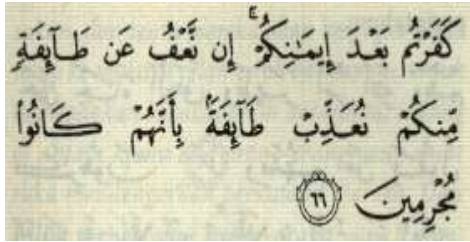 كَفَرْتُم بَعْدَ إِيمَٰنِكُمْ ۚ إِن نَّعْفُ عَن طَآئِفَةٍ
مِّنكُمْ نُعَذِّبْ طَآئِفَةًۢ بِأَنَّهُمْ كَانُوا۟
مُجْرِمِينَ ٦٦